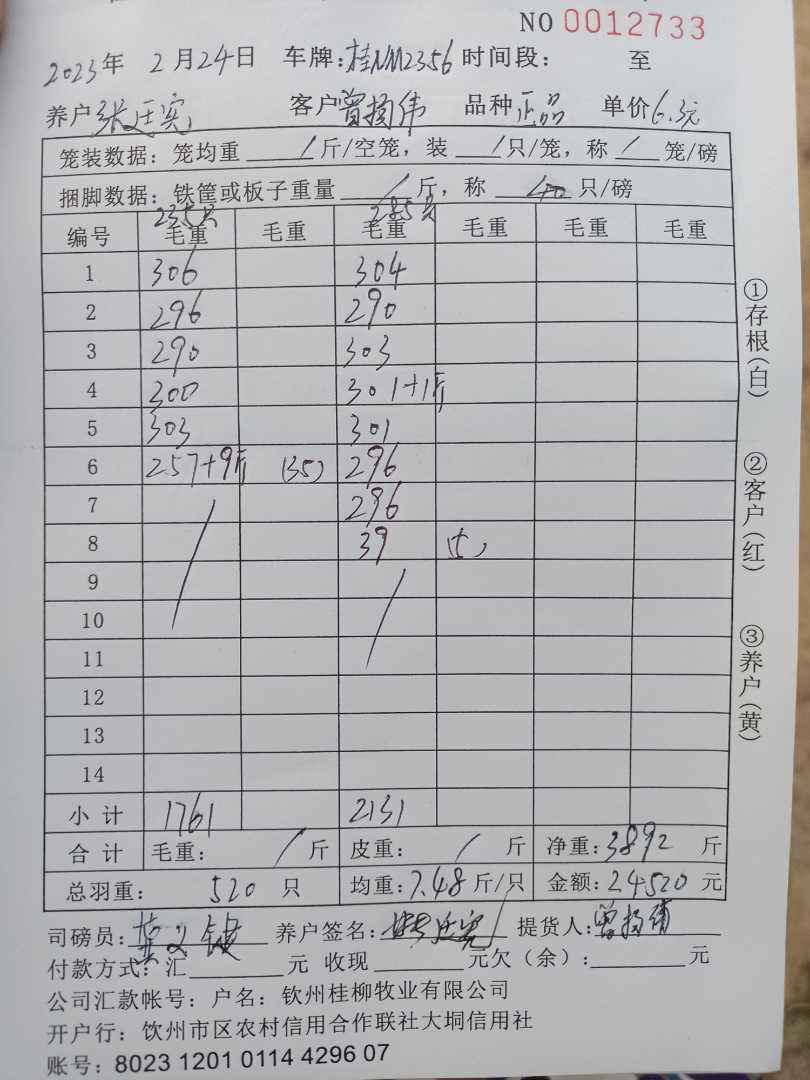 NO 0012733
2023年 2月24日 车牌:桂NM2356 时间段: 至
养户 张廷宪 客户 曾扬伟 品种 正品 单价 6.3元
笼装数据:笼均重 / 斤/空笼,装 / 只/笼,称 / 笼/磅
捆脚数据:铁筐或板子重量 / 斤,称 40 只/磅
235只 285只
编号 毛重 毛重 毛重 毛重 毛重 毛重
1 306 304
2 296 290
3 290 303
4 300 301+1斤
5 303 301
6 257+9斤 (35) 296
7 / 296
8 39 (5)
9 /
10
11
12
13
14
小计 1761 2131
合计 毛重: / 斤 皮重: / 斤 净重:3892 斤
总羽重: 520 只 均重:7.48斤/只 金额:24520元
司磅员: 养户签名: 提货人:曾扬伟
付款方式:汇 元 收现 元欠(余): 元
公司汇款帐号:户名:钦州桂柳牧业有限公司
开户行:饮州市区农村信用合作联社大垌信用社
账号:8023 1201 0114 4296 07
①存根(白)
②客户(红)
③养户(黄)